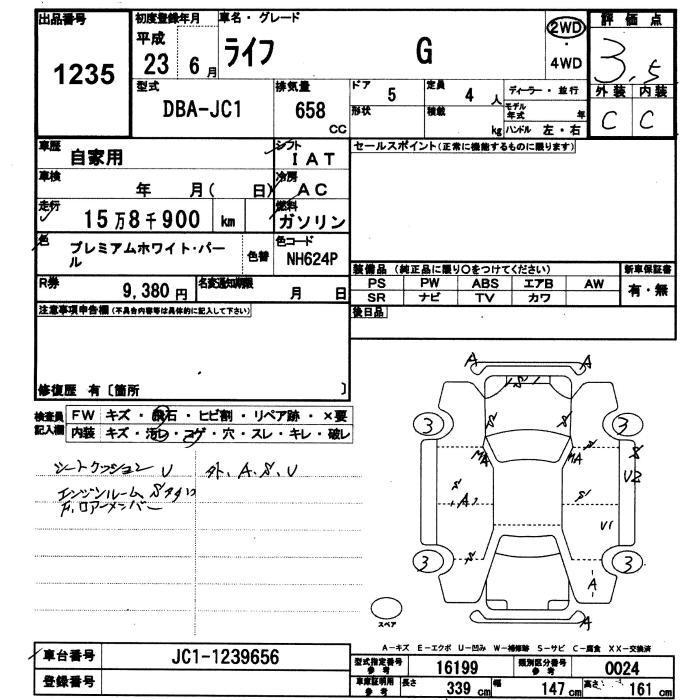 出品番号
1235
初度登録年月
平成
23 6月
車名・グレード
ライフ G
2WD
・
4WD
評価点
3.5
外装 内装
C C
型式
DBA-JC1
排気量
658
CC
ドア
5
定員
4 人
形状
積載
kg
ディーラー・並行
モデル年式 年
ハンドル 左・右
車歴
自家用
シフト
IAT
車検
年 月( 日)
冷房
AC
走行
15万8千900 km
燃料
ガソリン
色
プレミアムホワイト・パール
色替
色コード
NH624P
R券
9,380円
名変通知期限
月 日
セールスポイント(正常に機能するものに限ります)
装備品(純正品に限り○をつけてください)
新車保証書
PS PW ABS エアB AW
SR ナビ TV カワ
有・無
後日品
注意事項申告欄(不具合内容等は具体的に記入して下さい)
修復歴 有〔箇所 〕
検査員記入欄
FW キズ・飛石・ヒビ割・リペア跡・×要
内装 キズ・汚レ・コゲ・穴・スレ・キレ・破レ
シートクッション U
外、A、S、U
エンジンルーム
ロアーメンバー
A A
S
S S
3 3
MA MA
S
S
U2
S
A
S
U1
S
3 3
A
A
スペア
A-キズ E-エクボ U-凹み W-補修跡 S-サビ C-腐食 XX-交換済
車台番号
JC1-1239656
登録番号
型式指定番号参考
16199
類別区分番号参考
0024
車庫証明用参考
長さ 339 cm
幅 147 cm
高さ 161 cm